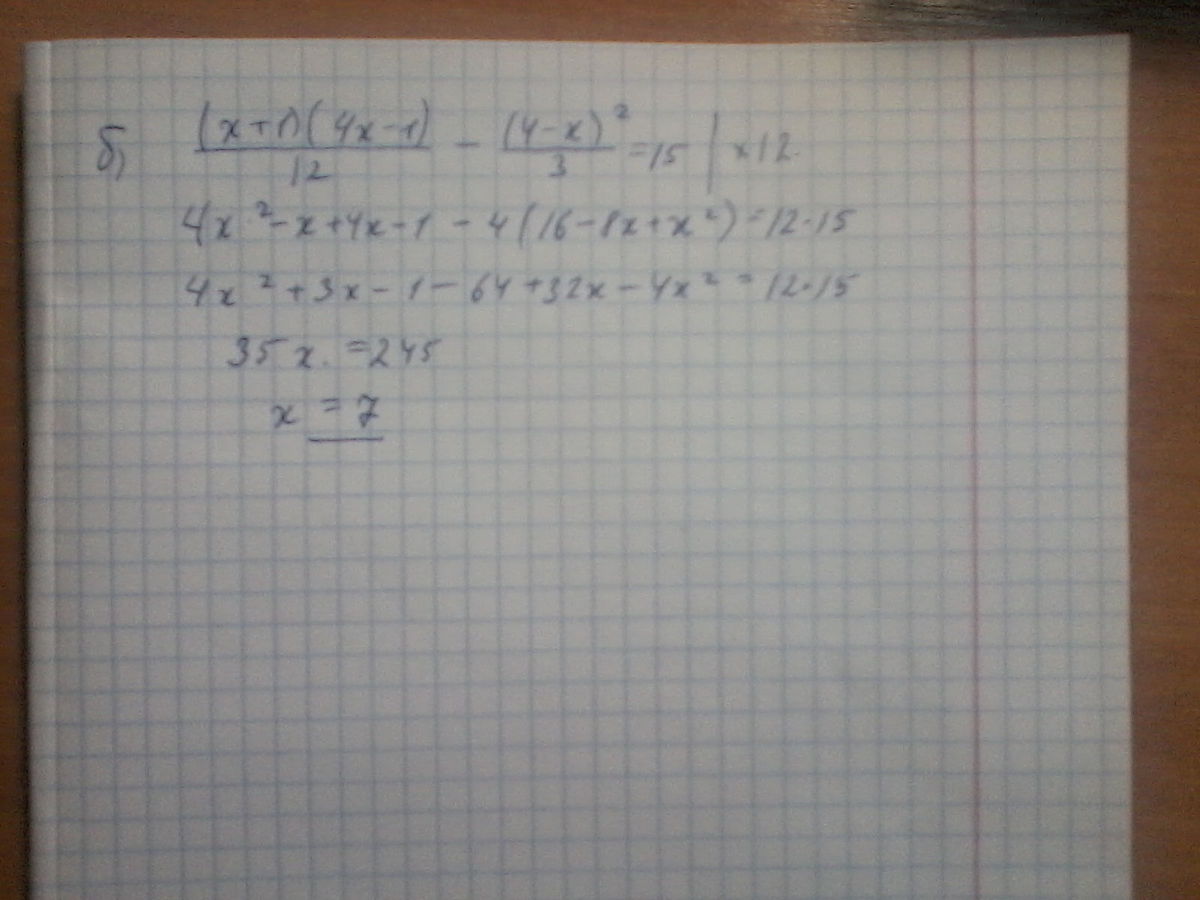 б) (x+1)(4x-1)/12 - (4-x)²/3 = 15 | ×12.
4x² - x + 4x - 1 - 4(16 - 8x + x²) = 12·15
4x² + 3x - 1 - 64 + 32x - 4x² = 12·15
35x. = 245
x = 7